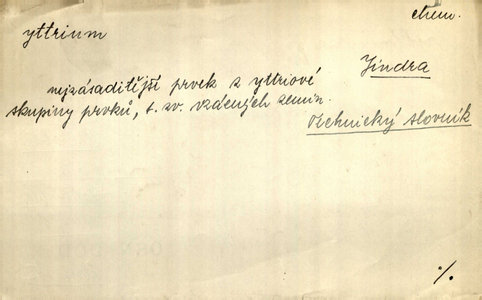 chem.
yttrium
Jindra
nejzásaditější prvek z yttriové
skupiny prvků, t. zv. vzácných zemin.
Technický slovník
%